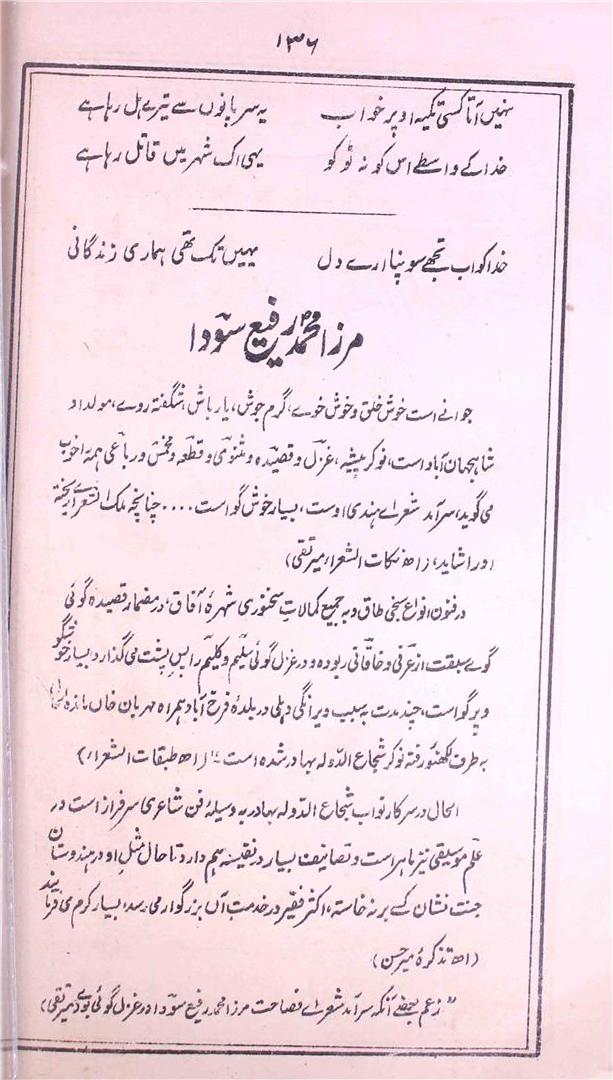 ۱۳۶
نہیں آتا کسی تکیہ اوپر خواب یہ سر بانوں سے تیرے ہل رہا ہے
خدا کے واسطے اس کو نہ ٹوکو یہی اک شہر میں قاتل رہا ہے
خدا کو اب تجھے سونپا ارے دل یہیں تک تھی ہماری زندگانی
مرزا محمد رفیع سودا
جوانے است خوش خلق و خوش خوے، گرم جوش، یار باش، شگفتہ روے، مولد او
شاہجہان آباد است، نوکر پیشہ، غزل و قصیدہ و مثنوی و قطعہ و مخمس و رباعی ہمہ را خوب
می گوید، سر آمد شعراے ہندی اوست، بسیار خوش گو است.... چنانچہ ملک الشعرائے ریختہ
او را شاید، (اھ نکات الشعراء میر تقی)
در فنون انواع سخنی طاق و بہ جمیع کمالات سخنوری شہرۂ آفاق: در مضمار قصیدہ گوئی
گوے سبقت از عرفی و خاقانی ربودہ و در غزل گوئی سلیم و کلیم را پس پشت می گذارد بسیار خوشگو
و پرگو است، چند مدت بہ سبب ویرانگی دہلی در بلدۂ فرخ آباد ہمراہ مہربان خاں ماندہ الحال
بہ طرف لکھنؤ رفتہ نوکر شجاع الدولہ بہادر شدہ است" (اھ طبقات الشعراء)
الحال در سرکار نواب شجاع الدولہ بہادر بہ وسیلۂ فن شاعری سرفراز است در
علم موسیقی نیز ماہر است و تصانیف بسیار در نفیسہ ہم دارد تا حال مثل او در ہندوستان
جنت نشان کسے بر نہ خاستہ، اکثر فقیر در خدمت آں بزرگوار می رسد، بسیار کرم می فرمایند
(اھ تذکرۂ میر حسن)
"زعم بعضے آنکہ سر آمد شعراے فصاحت مرزا محمد رفیع سودا در غزل گوئی بوے میر تقی)